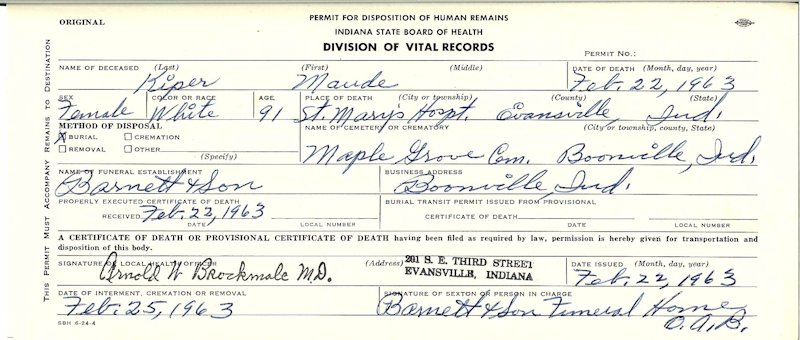 ORIGINAL
PERMIT FOR DISPOSITION OF HUMAN REMAINS
INDIANA STATE BOARD OF HEALTH
DIVISION OF VITAL RECORDS
PERMIT NO.:
THIS PERMIT MUST ACCOMPANY REMAINS TO DESTINATION
NAME OF DECEASED (Last) (First) (Middle) DATE OF DEATH (Month, day, year)
Kiper Maude Feb. 22, 1963
SEX COLOR OR RACE AGE PLACE OF DEATH (City or township) (County) (State)
Female White 91 St. Mary's Hospt. Evansville, Ind.
METHOD OF DISPOSAL NAME OF CEMETERY OR CREMATORY (City or township, county, State)
X BURIAL CREMATION
REMOVAL OTHER
(Specify)
Maple Grove Cem. Boonville, Ind.
NAME OF FUNERAL ESTABLISHMENT BUSINESS ADDRESS
Barnett & Son Boonville, Ind.
PROPERLY EXECUTED CERTIFICATE OF DEATH BURIAL TRANSIT PERMIT ISSUED FROM PROVISIONAL
RECEIVED Feb. 22, 1963 CERTIFICATE OF DEATH
DATE LOCAL NUMBER DATE LOCAL NUMBER
A CERTIFICATE OF DEATH OR PROVISIONAL CERTIFICATE OF DEATH having been filed as required by law, permission is hereby given for transportation and
disposition of this body.
SIGNATURE OF LOCAL HEALTH OFFICER (Address) 201 S. E. THIRD STREET DATE ISSUED (Month, day, year)
Arnold W Brockmole M.D. EVANSVILLE, INDIANA Feb. 22, 1963
DATE OF INTERMENT, CREMATION OR REMOVAL SIGNATURE OF SEXTON OR PERSON IN CHARGE
Feb. 25, 1963 Barnett & Son Funeral Home
O.A.B.
SBH 6-24-4